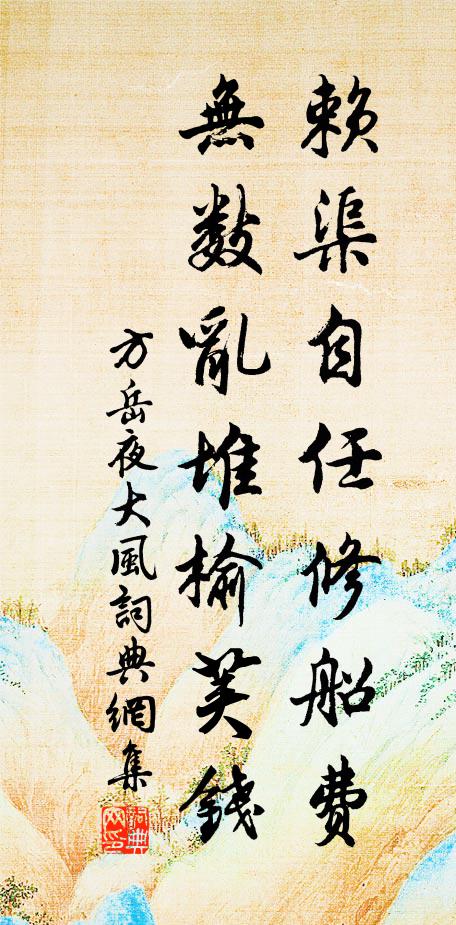 賴渠自任修船費
無數亂堆榆莢錢
方岳夜大風詞典網集
詞典網印